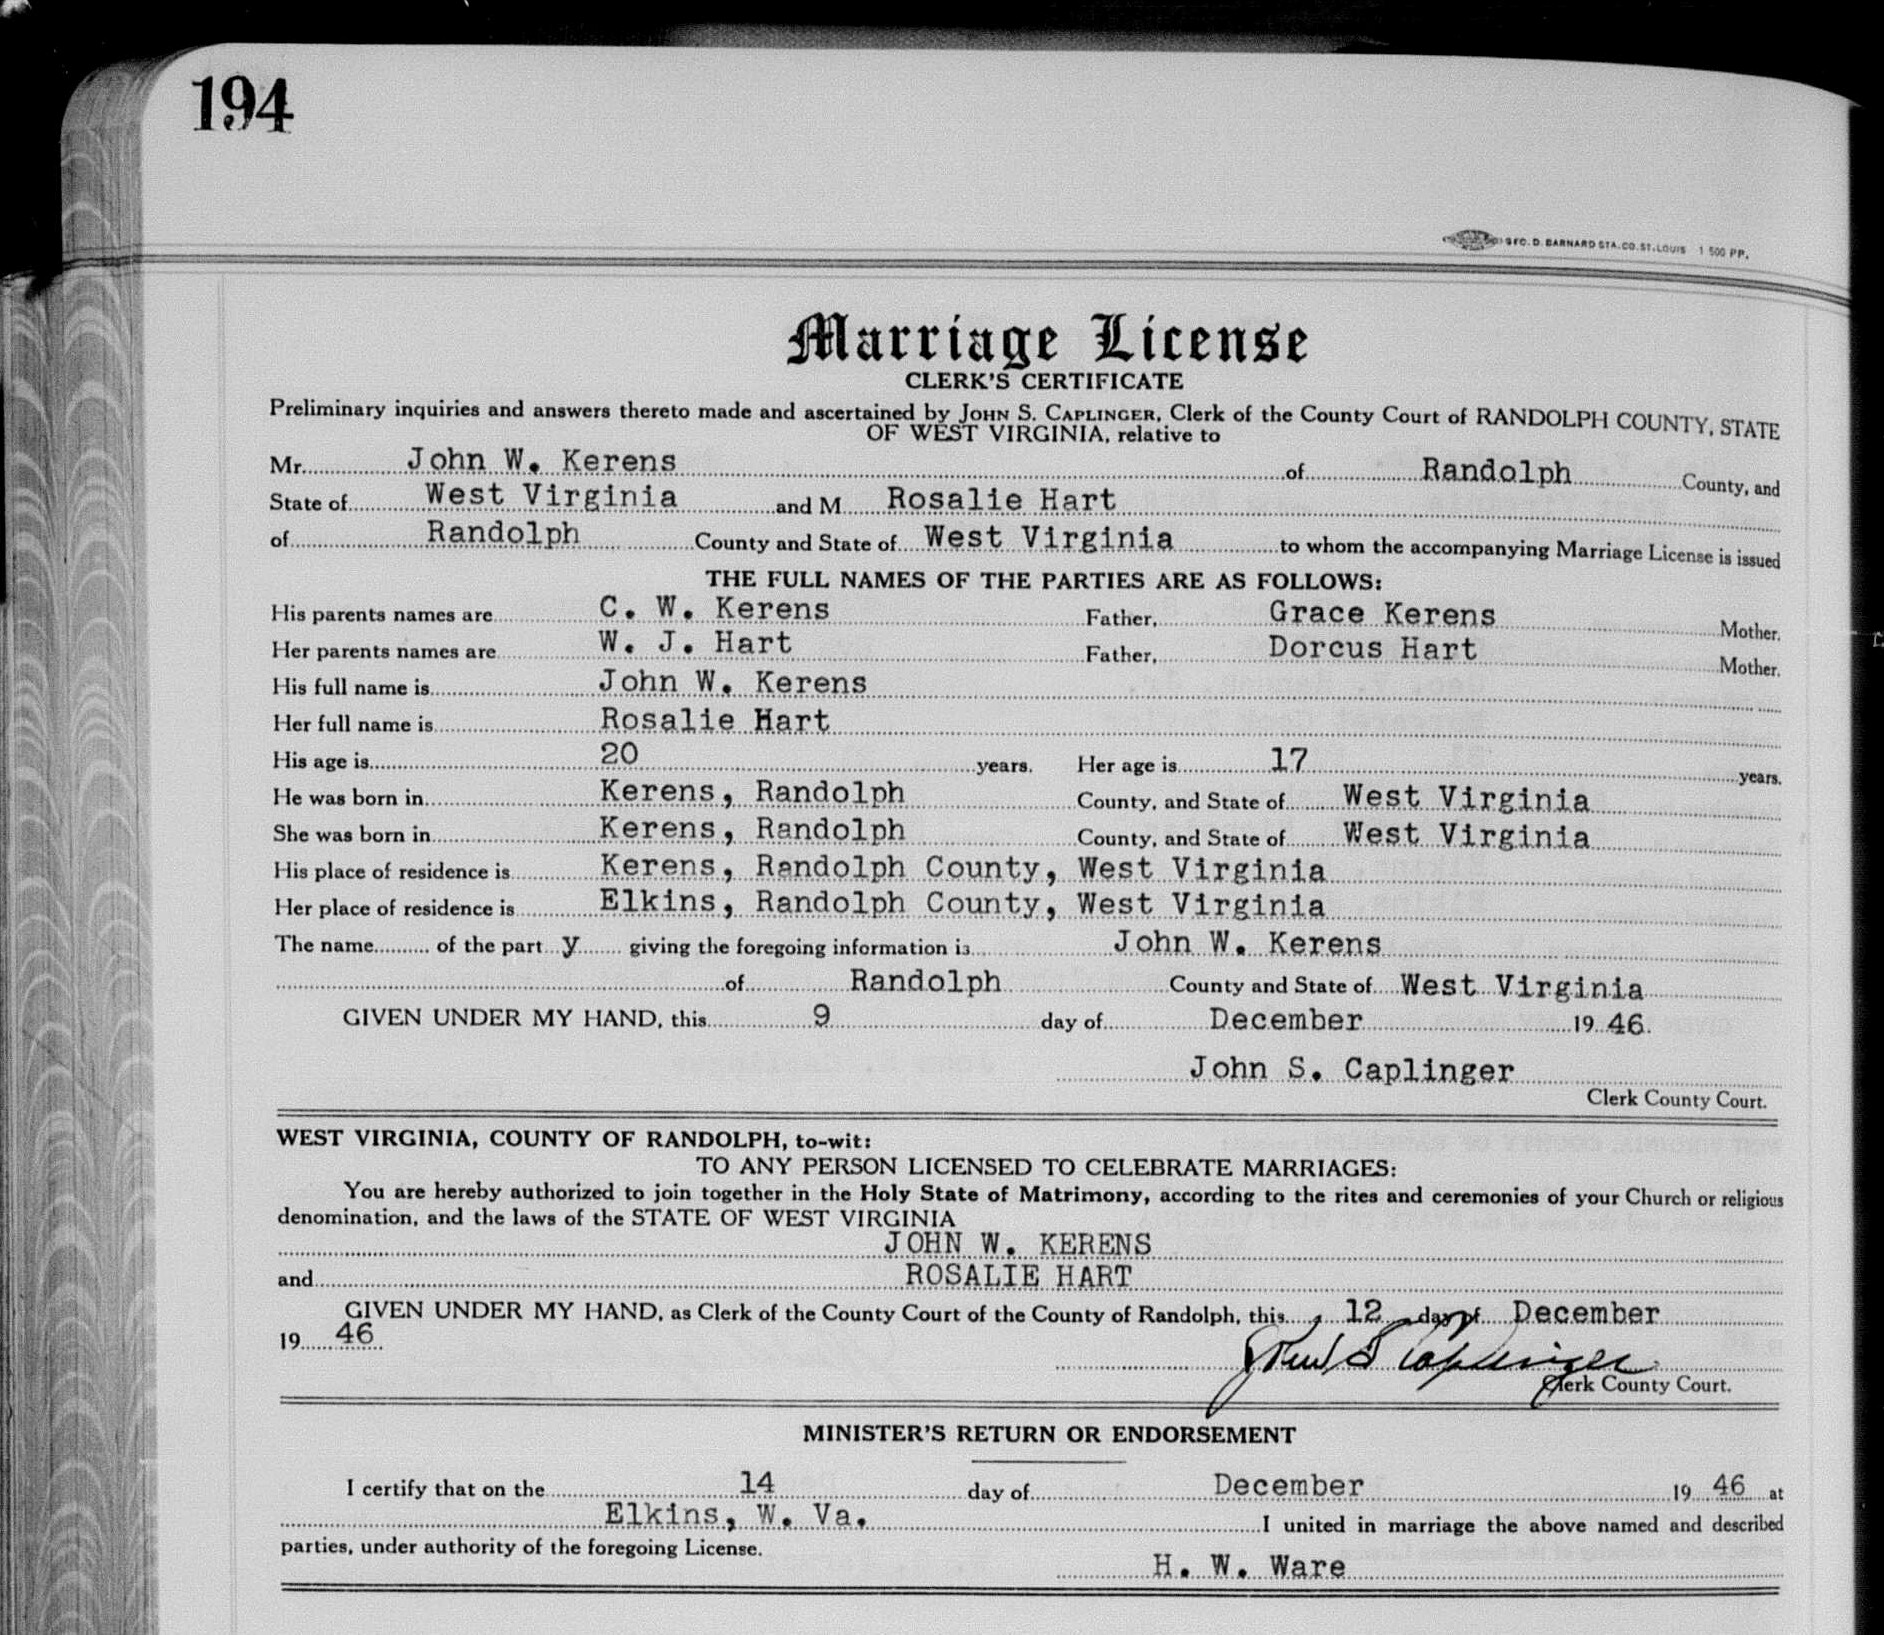 194
GEO. D. BARNARD STA. CO. ST. LOUIS 1 500 PP.
Marriage License
CLERK'S CERTIFICATE
Preliminary inquiries and answers thereto made and ascertained by JOHN S. CAPLINGER, Clerk of the County Court of RANDOLPH COUNTY, STATE
OF WEST VIRGINIA, relative to
Mr. John W. Kerens of Randolph County, and
State of West Virginia and M Rosalie Hart
of Randolph County and State of West Virginia to whom the accompanying Marriage License is issued
THE FULL NAMES OF THE PARTIES ARE AS FOLLOWS:
His parents names are C. W. Kerens Father, Grace Kerens Mother.
Her parents names are W. J. Hart Father, Dorcus Hart Mother.
His full name is John W. Kerens
Her full name is Rosalie Hart
His age is 20 years. Her age is 17 years.
He was born in Kerens, Randolph County, and State of West Virginia
She was born in Kerens, Randolph County, and State of West Virginia
His place of residence is Kerens, Randolph County, West Virginia
Her place of residence is Elkins, Randolph County, West Virginia
The name of the part y giving the foregoing information is John W. Kerens
of Randolph County and State of West Virginia
GIVEN UNDER MY HAND, this 9 day of December 19 46.
John S. Caplinger
Clerk County Court.
WEST VIRGINIA, COUNTY OF RANDOLPH, to-wit:
TO ANY PERSON LICENSED TO CELEBRATE MARRIAGES:
You are hereby authorized to join together in the Holy State of Matrimony, according to the rites and ceremonies of your Church or religious
denomination, and the laws of the STATE OF WEST VIRGINIA
JOHN W. KERENS
and ROSALIE HART
GIVEN UNDER MY HAND, as Clerk of the County Court of the County of Randolph, this 12 day of December
19 46
John S Caplinger
Clerk County Court.
MINISTER'S RETURN OR ENDORSEMENT
I certify that on the 14 day of December 19 46 at
Elkins, W. Va. I united in marriage the above named and described
parties, under authority of the foregoing License.
H. W. Ware